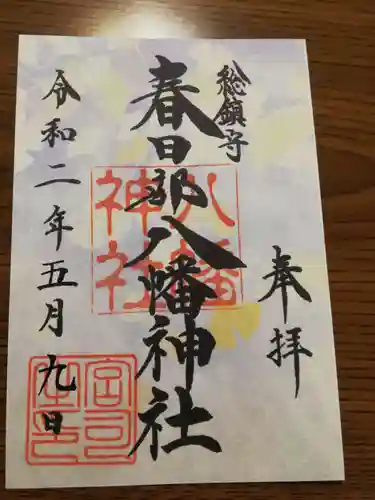 奉拝
総鎮守
春日部八幡神社
八幡
神社
令和二年五月九日
宮司
之印